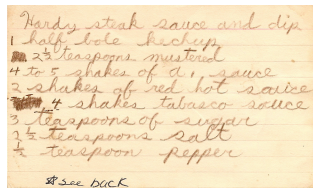 Hardy steak sauce and dip
1 half bole kechup
2 1/2 teaspoons mustered
4 to 5 shakes of a, sauce
2 shakes of red hot sauice
4 shakes tabasco souce
3 teaspoons of sugar
2 1/2 teaspoons salt
1/2 teaspoon pepper
See buck